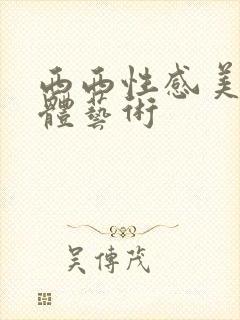 西西性感美
體藝術
吴傳茂